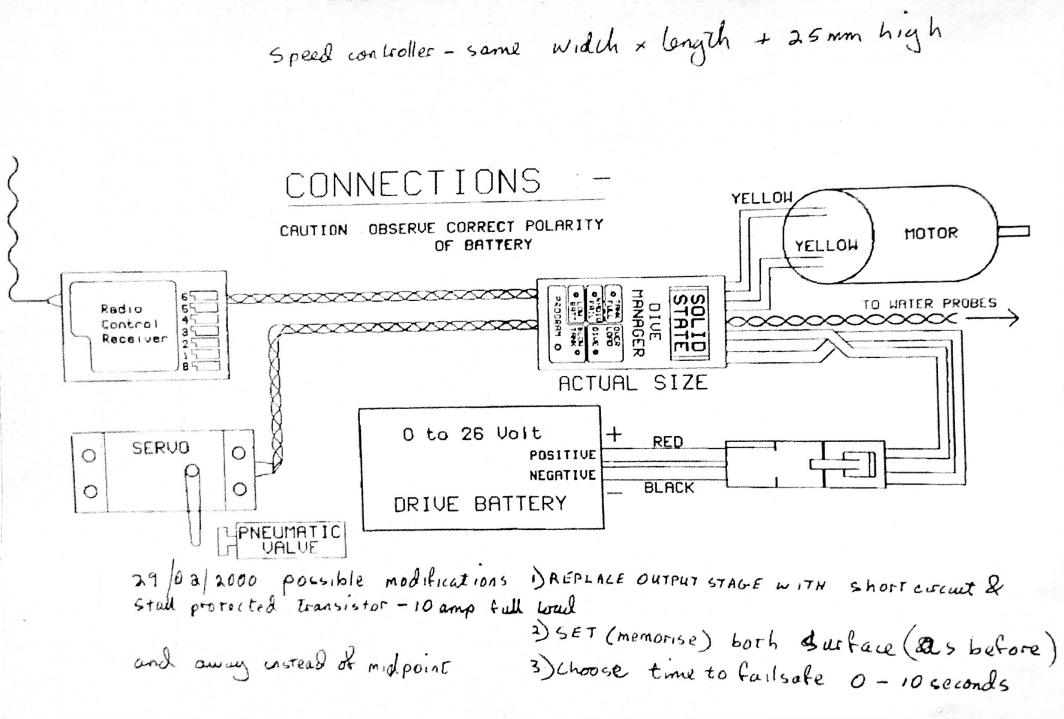 Speed controller - same width x length + 25mm high
CONNECTIONS -
CAUTION OBSERVE CORRECT POLARITY
OF BATTERY
YELLOW
YELLOW
MOTOR
Radio
Control
Receiver
6
5
4
3
2
1
B
PROGRAM
LOW
BATT
TANK
FULL
OVER
LOAD
DIVE
TANK
DIVE
MANAGER
SOLID
STATE
TO WATER PROBES
ACTUAL SIZE
SERVO
PNEUMATIC
VALVE
0 to 26 Volt
+
POSITIVE
RED
NEGATIVE
BLACK
-
DRIVE BATTERY
29/02/2000 possible modifications 1) REPLACE OUTPUT STAGE WITH short circuit &
stall protected transistor - 10 amp full load
2) SET (memorise) both surface (as before)
and away instead of midpoint
3) Choose time to failsafe 0 - 10 seconds